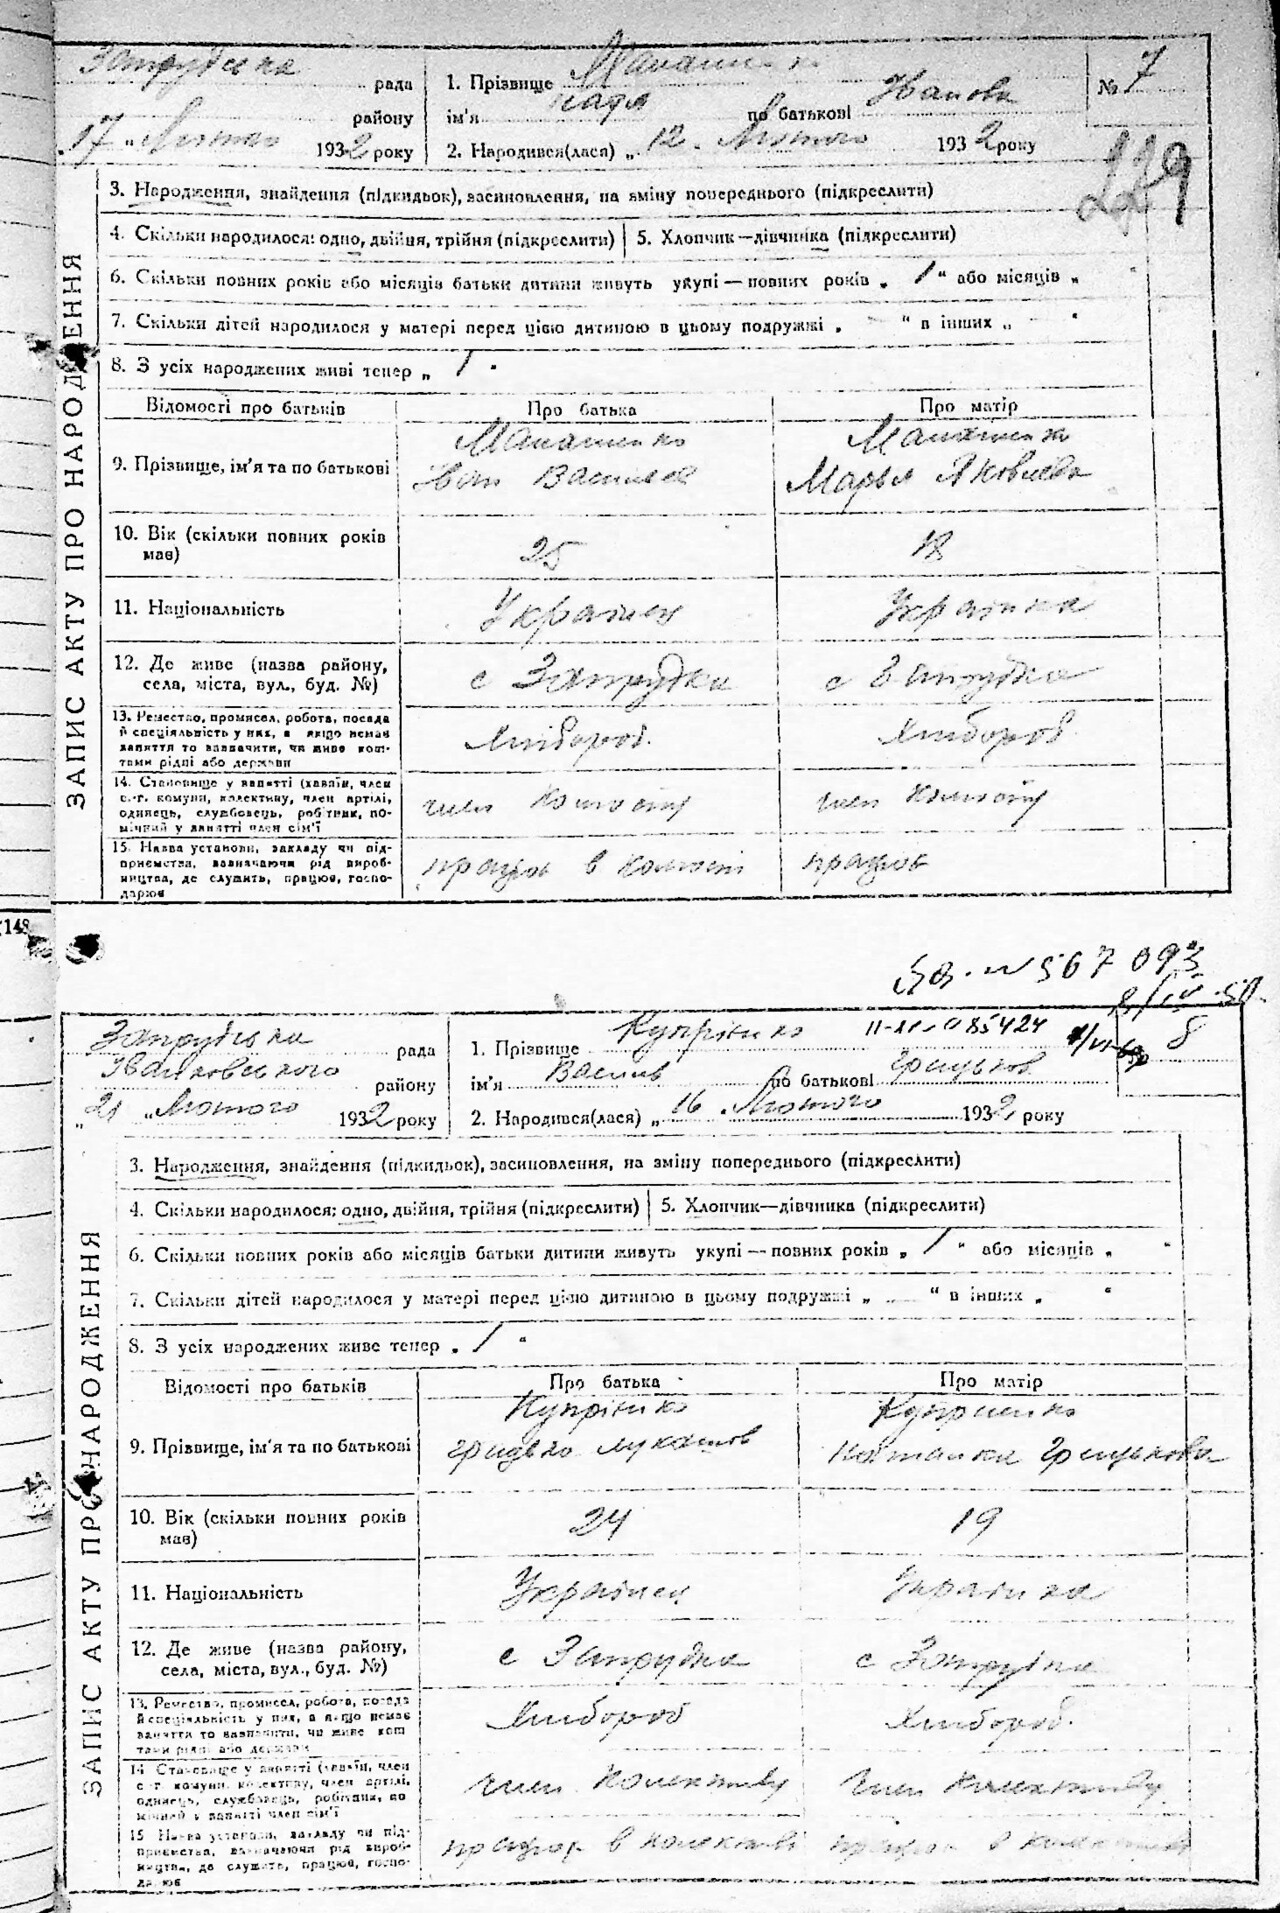 ЗАПИС АКТУ ПРО НАРОДЖЕННЯ
Запрудська рада
району
"17" Лютого 1932 року
1. Прізвище
ім'я Надя по батькові Иванова
2. Народився(лася) "12" Лютого 1932 року
№ 7
229
3. Народження, знайдення (підкидьок), засиновлення, на зміну попереднього (підкреслити)
4. Скільки народилося: одно, двійня, трійня (підкреслити)
5. Хлопчик—дівчинка (підкреслити)
6. Скільки повних років або місяців батьки дитини живуть укупі—повних років „ 1 " або місяців „ "
7. Скільки дітей народилося у матері перед цією дитиною в цьому подружжі „ " в інших „ "
8. З усіх народжених живі тепер „ 1 "
Відомості про батьків Про батька Про матір
9. Прізвище, ім'я та по батькові
Марья Яковлева
10. Вік (скільки повних років має) 25 18
11. Національність Українец Українка
12. Де живе (назва району, села, міста, вул., буд. №) с Запрудка с Запрудка
13. Ремество, промисел, робота, посада
й спеціяльність у них, а якщо немає
заняття то зазначити, чи живе кош-
тами рідні або держави
Хлібороб. Хлібороб
14. Становище у занятті (хазяїн, член
с.-г. комуни, колективу, член артілі,
одинець, службовець, робітник, по-
мічний у занятті член сім'ї
член член
15. Назва установи, закладу чи під-
приємства, зазначаючи рід вироб-
ництва, де служить, працює, госпо-
дарює
працює в працює
148
№ 567093
II-АП № 085424
ЗАПИС АКТУ ПРО НАРОДЖЕННЯ
Запрудська рада
Іванковського району
"21" Лютого 1932 року
1. Прізвище Купрієнко
ім'я Василь по батькові Грицьков
2. Народився(лася) „16 Лютого 1932 року
8
3. Народження, знайдення (підкидьок), засиновлення, на зміну попереднього (підкреслити)
4. Скільки народилося: одно, двійня, трійня (підкреслити)
5. Хлопчик—дівчинка (підкреслити)
6. Скільки повних років або місяців батьки дитини живуть укупі—повних років „ 1 " або місяців „ "
7. Скільки дітей народилося у матері перед цією дитиною в цьому подружжі „ " в інших „ "
8. З усіх народжених живе тепер „ 1 "
Відомості про батьків Про батька Про матір
9. Прізвище, ім'я та по батькові
Купрієнко Куприенко
Грицько Лукашов Наталка Грицькова
10. Вік (скільки повних років має) 24 19
11. Національність Українец Українка
12. Де живе (назва району, села, міста, вул., буд. №) с Запрудка с Запрудка
13. Ремество, промисел, робота, посада
й спеціяльність у них, а якщо немає
заняття то зазначити, чи живе кош
тами рідні або держави
Хлібороб Хлібороб.
14 Становище у занятті (хазяїн, член
с-г. комуни, колективу, член артілі,
одинець, службовець, робітник, по
мічний у занятті член сім'ї
член колективу член колективу
15 Назва установи, закладу чи під-
приємства, зазначаючи рід вироб-
ництва, де служить, працює, госпо-
дарює
працює в колективі працює в